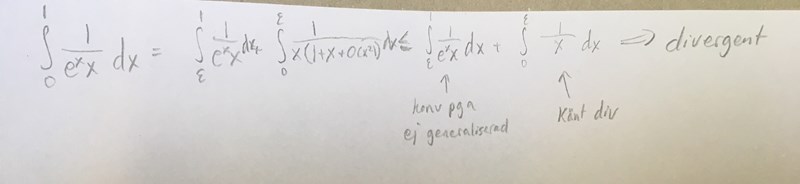 ∫₀¹ 1/(eˣx) dx = ∫_ε¹ 1/(eˣx) dx + ∫₀^ε 1/(x(1+x+O(x²))) dx ≤ ∫_ε¹ 1/(eˣx) dx + ∫₀^ε 1/x dx ⇒ divergent
↑ ↑
konv pga känt div
ej generaliserad